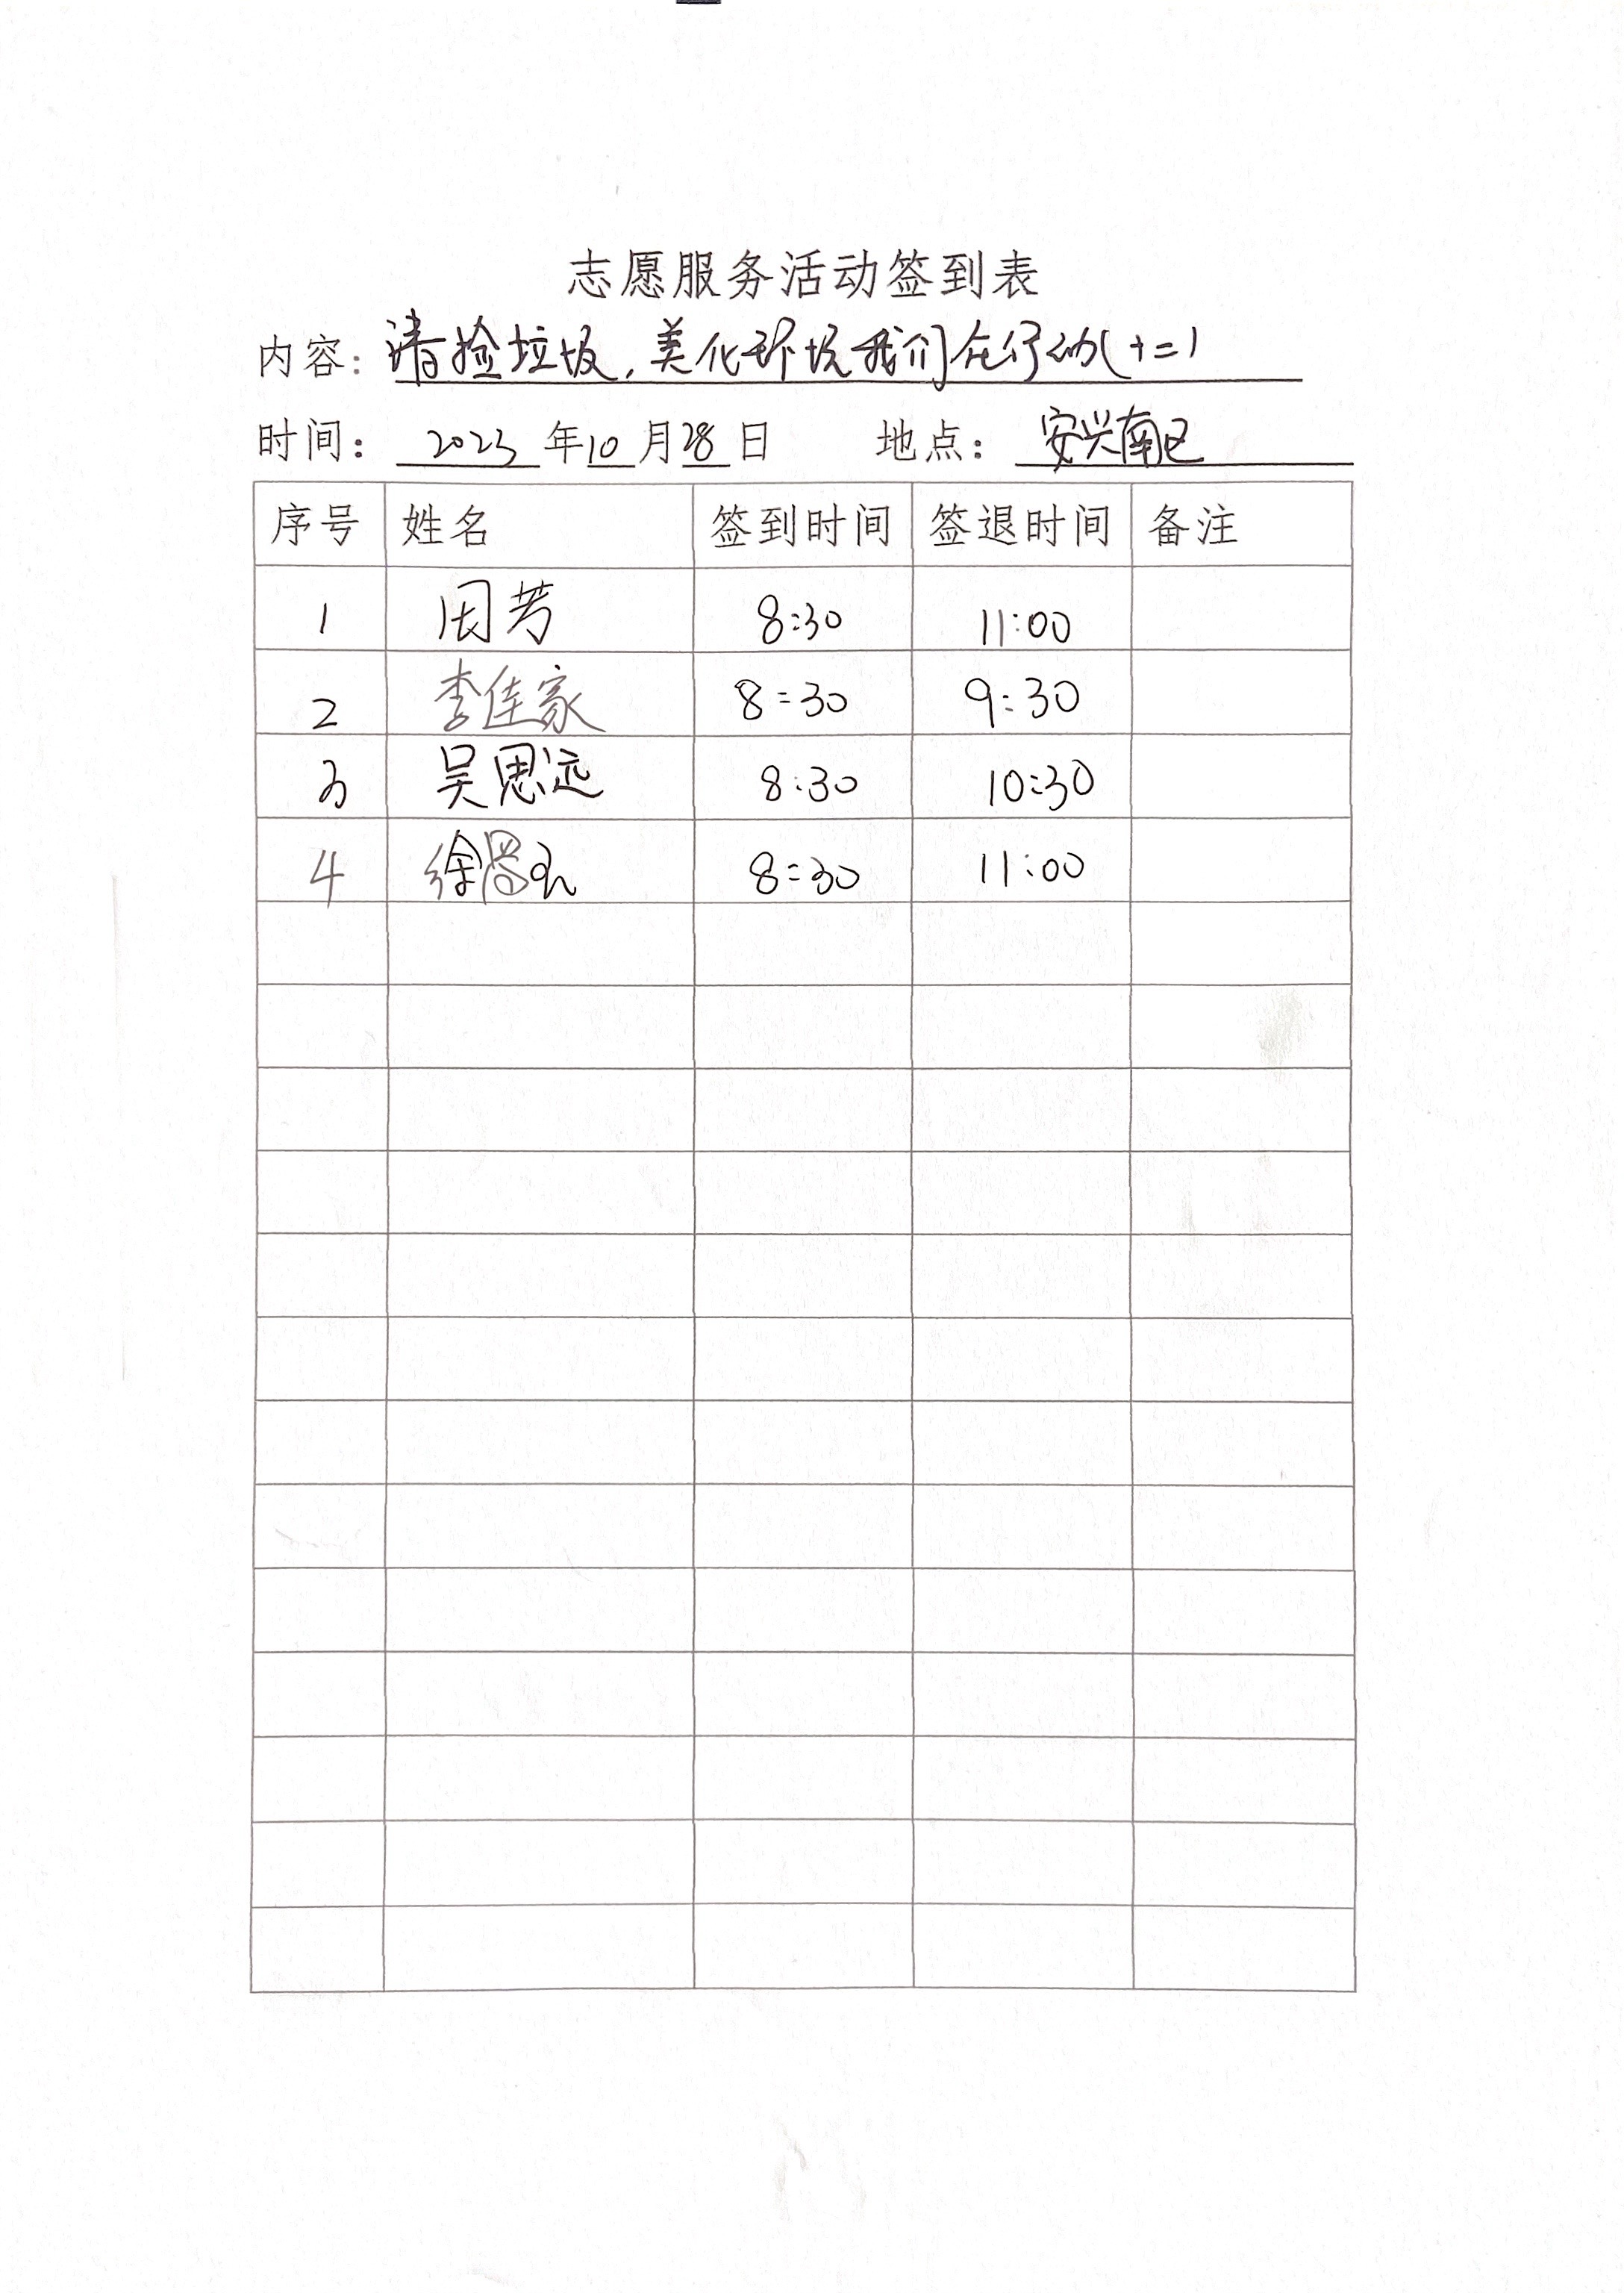 志愿服务活动签到表
内容：清捡垃圾，美化环境我们在行动（十二）
时间：2023年10月28日 地点：安兴南区
序号 姓名 签到时间 签退时间 备注
1 周芳 8:30 11:00
2 李佳家 8:30 9:30
3 吴思远 8:30 10:30
4 徐 8:30 11:00